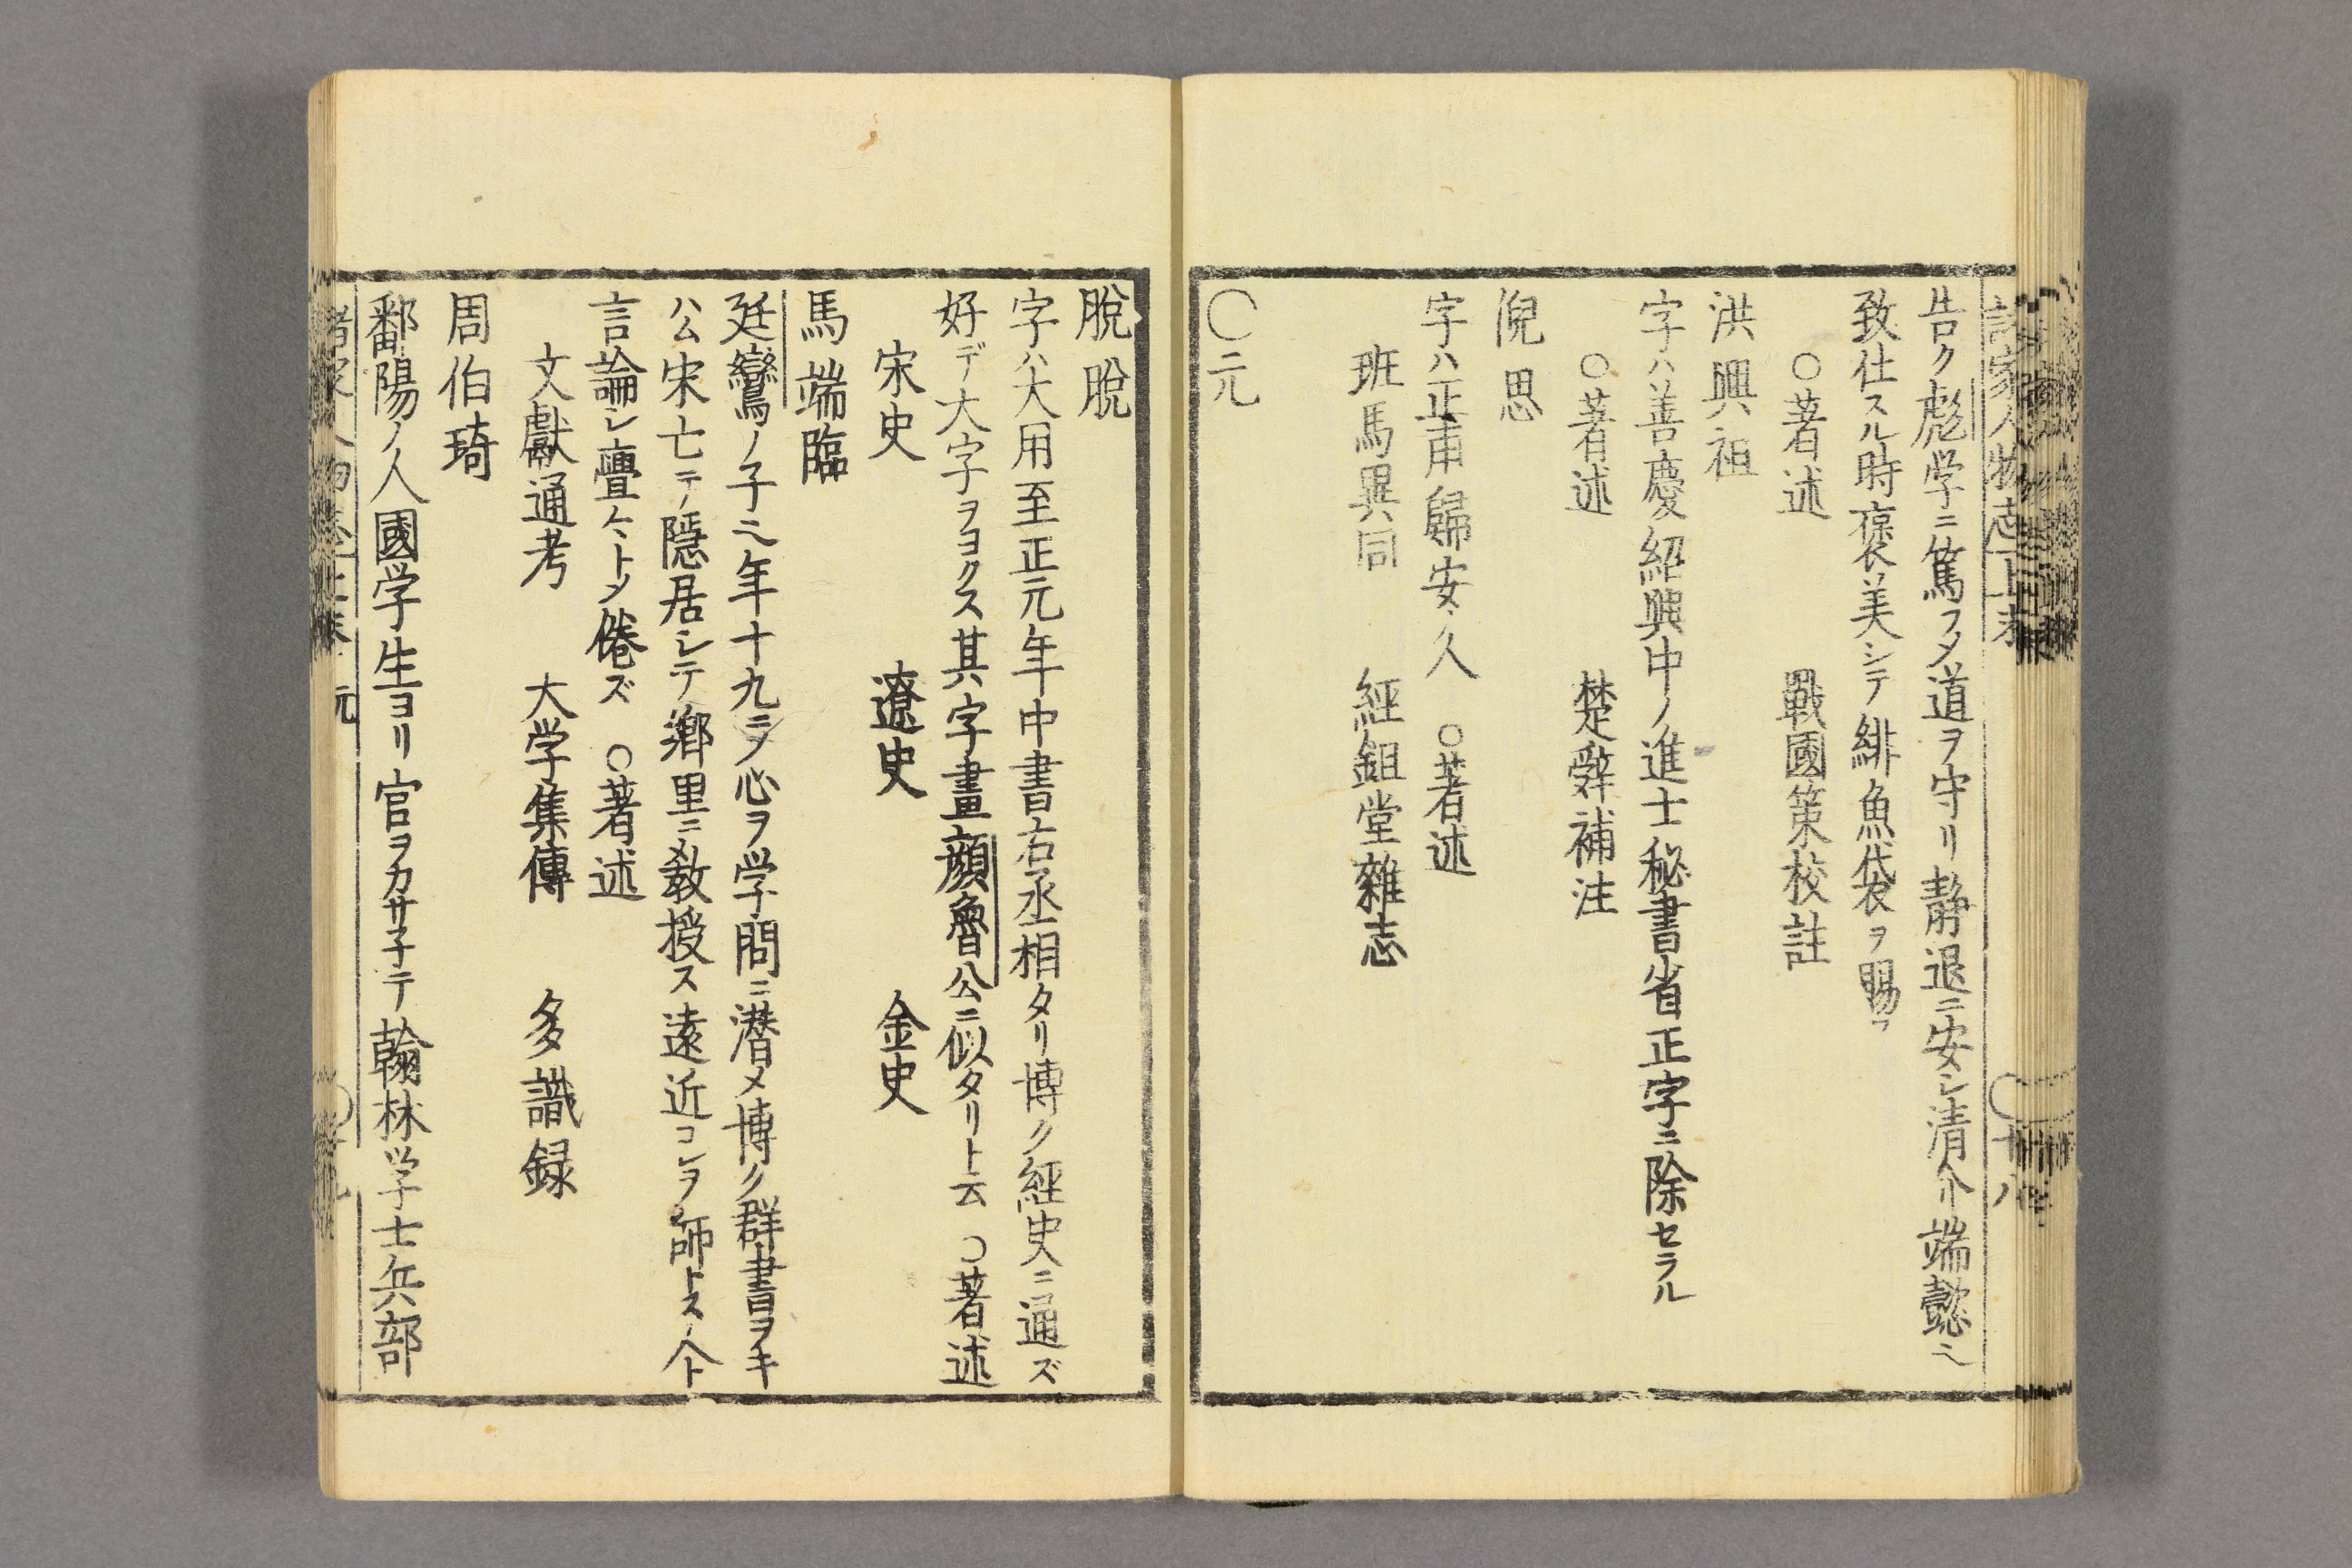 諸家人物志上末
十八
告ク彪学ニ篤フメ道ヲ守リ静退ニ安シ清介端懿ニ
致仕スル時褒美シテ緋魚袋ヲ賜フ
○著述 戰國策校註
洪興祖
字ハ善慶紹興中ノ進士秘書省正字ニ除セラル
○著述 楚辭補注
倪思
字ハ正甫歸安ノ人 ○著述
班馬異同 經鉏堂雜志
○元
脫脫
字ハ大用至正元年中書右丞相タリ博ク經史ニ通ズ
好デ大字ヲヨクス其字畫顔魯公ニ似タリト云 ○著述
宋史 遼史 金史
馬端臨
廷鸞ノ子ニ年十九ニ心ヲ学問ニ潜メ博ク群書ヲキ
公宋亡テ隠居シテ郷里ニ教授ス遠近コレヲ師トス人ト
言論シ亹々トメ倦ズ ○著述
文獻通考 大学集傳 多識録
周伯琦
鄱陽ノ人國学生ヨリ官ヲカサ子テ翰林学士兵部
元